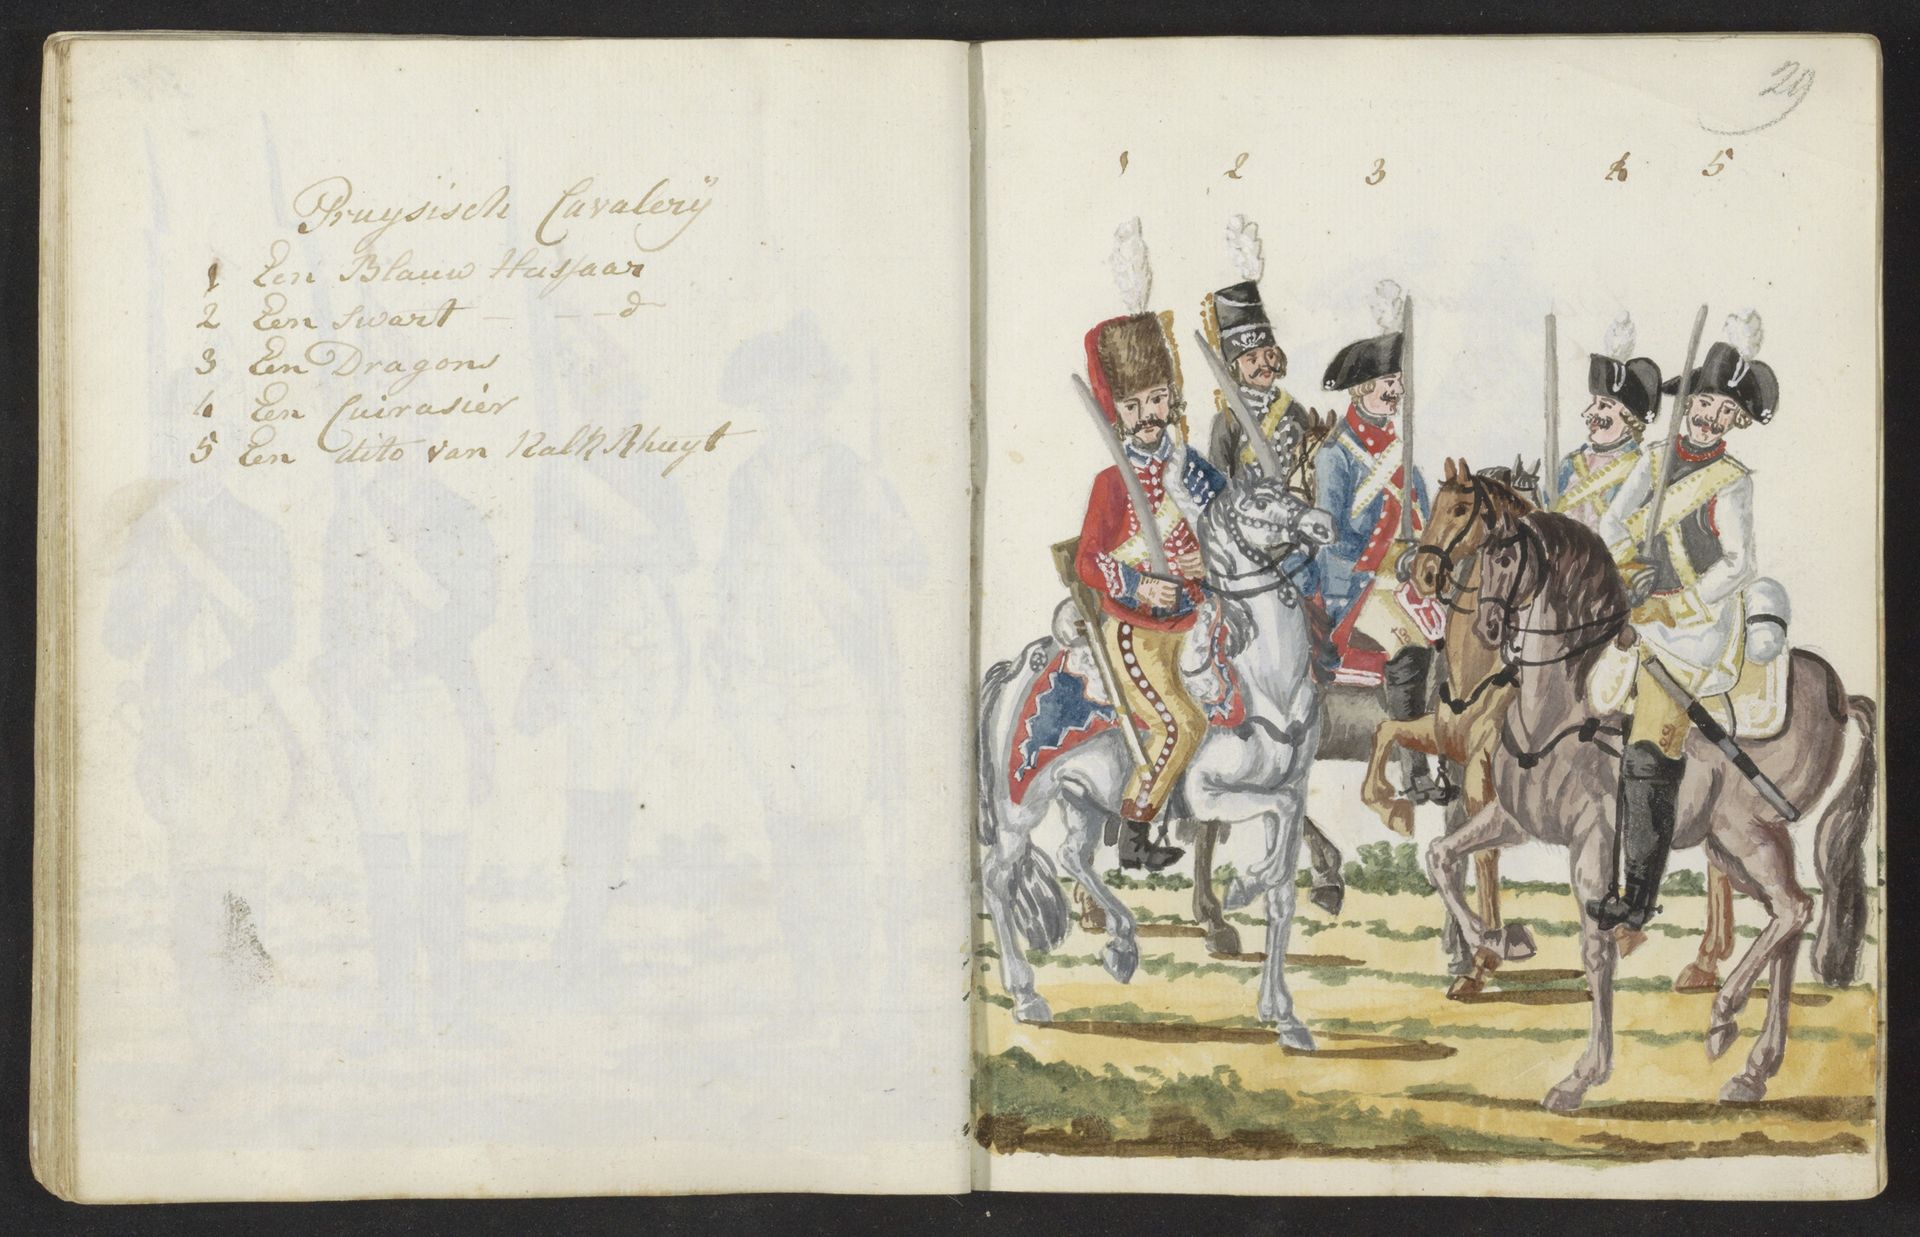 Pruysisch Cavalerÿ
1 Een Blauw Hussaar
2 Een Swart — — — dº
3 Een Dragons
4 Een Cuirasier
5 Een dito van KalkRhuyt
29
1 2 3 4 5